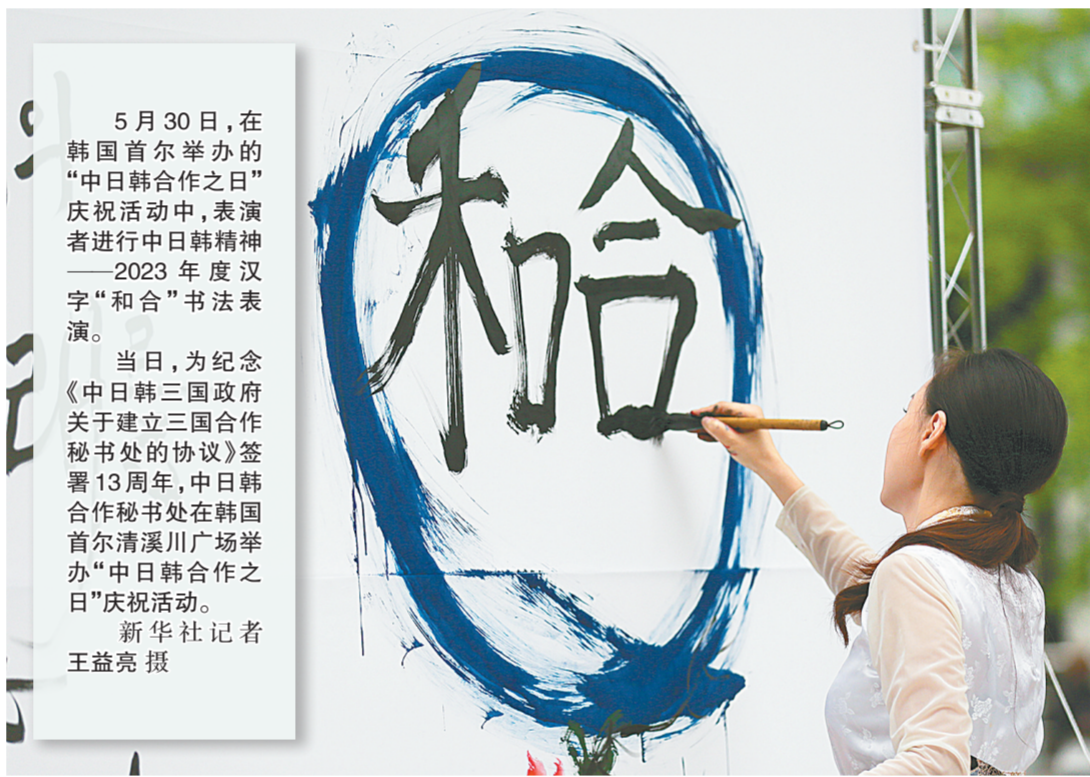 5月30日，在
韩国首尔举办的
“中日韩合作之日”
庆祝活动中，表演
者进行中日韩精神
——2023年度汉
字“和合”书法表
演。
当日，为纪念
《中日韩三国政府
关于建立三国合作
秘书处的协议》签
署13周年，中日韩
合作秘书处在韩国
首尔清溪川广场举
办“中日韩合作之
日”庆祝活动。
新华社记者
王益亮 摄
和合